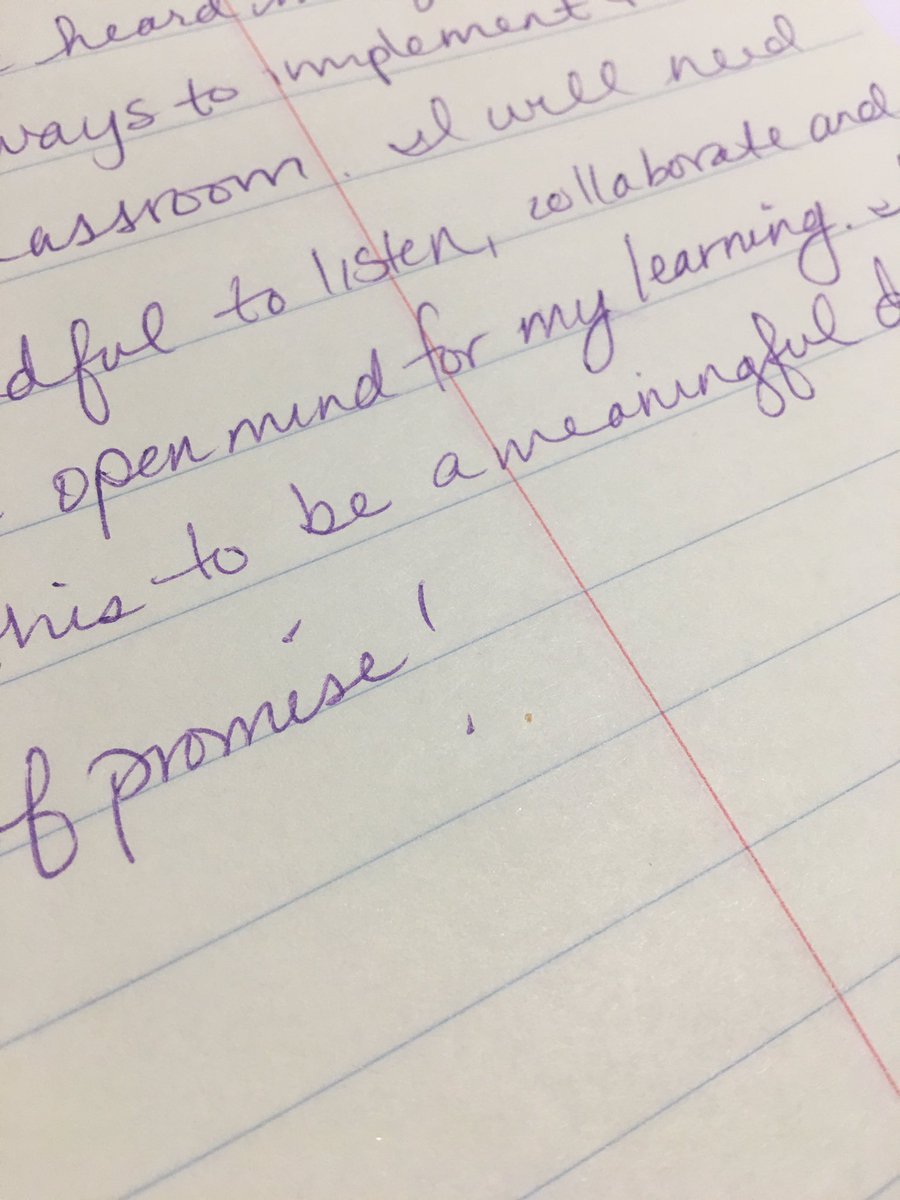 heard
ways to implement
assroom. I will need
dful to listen, collaborate and
open mind for my learning. I
his to be a meaningful d
of promise!